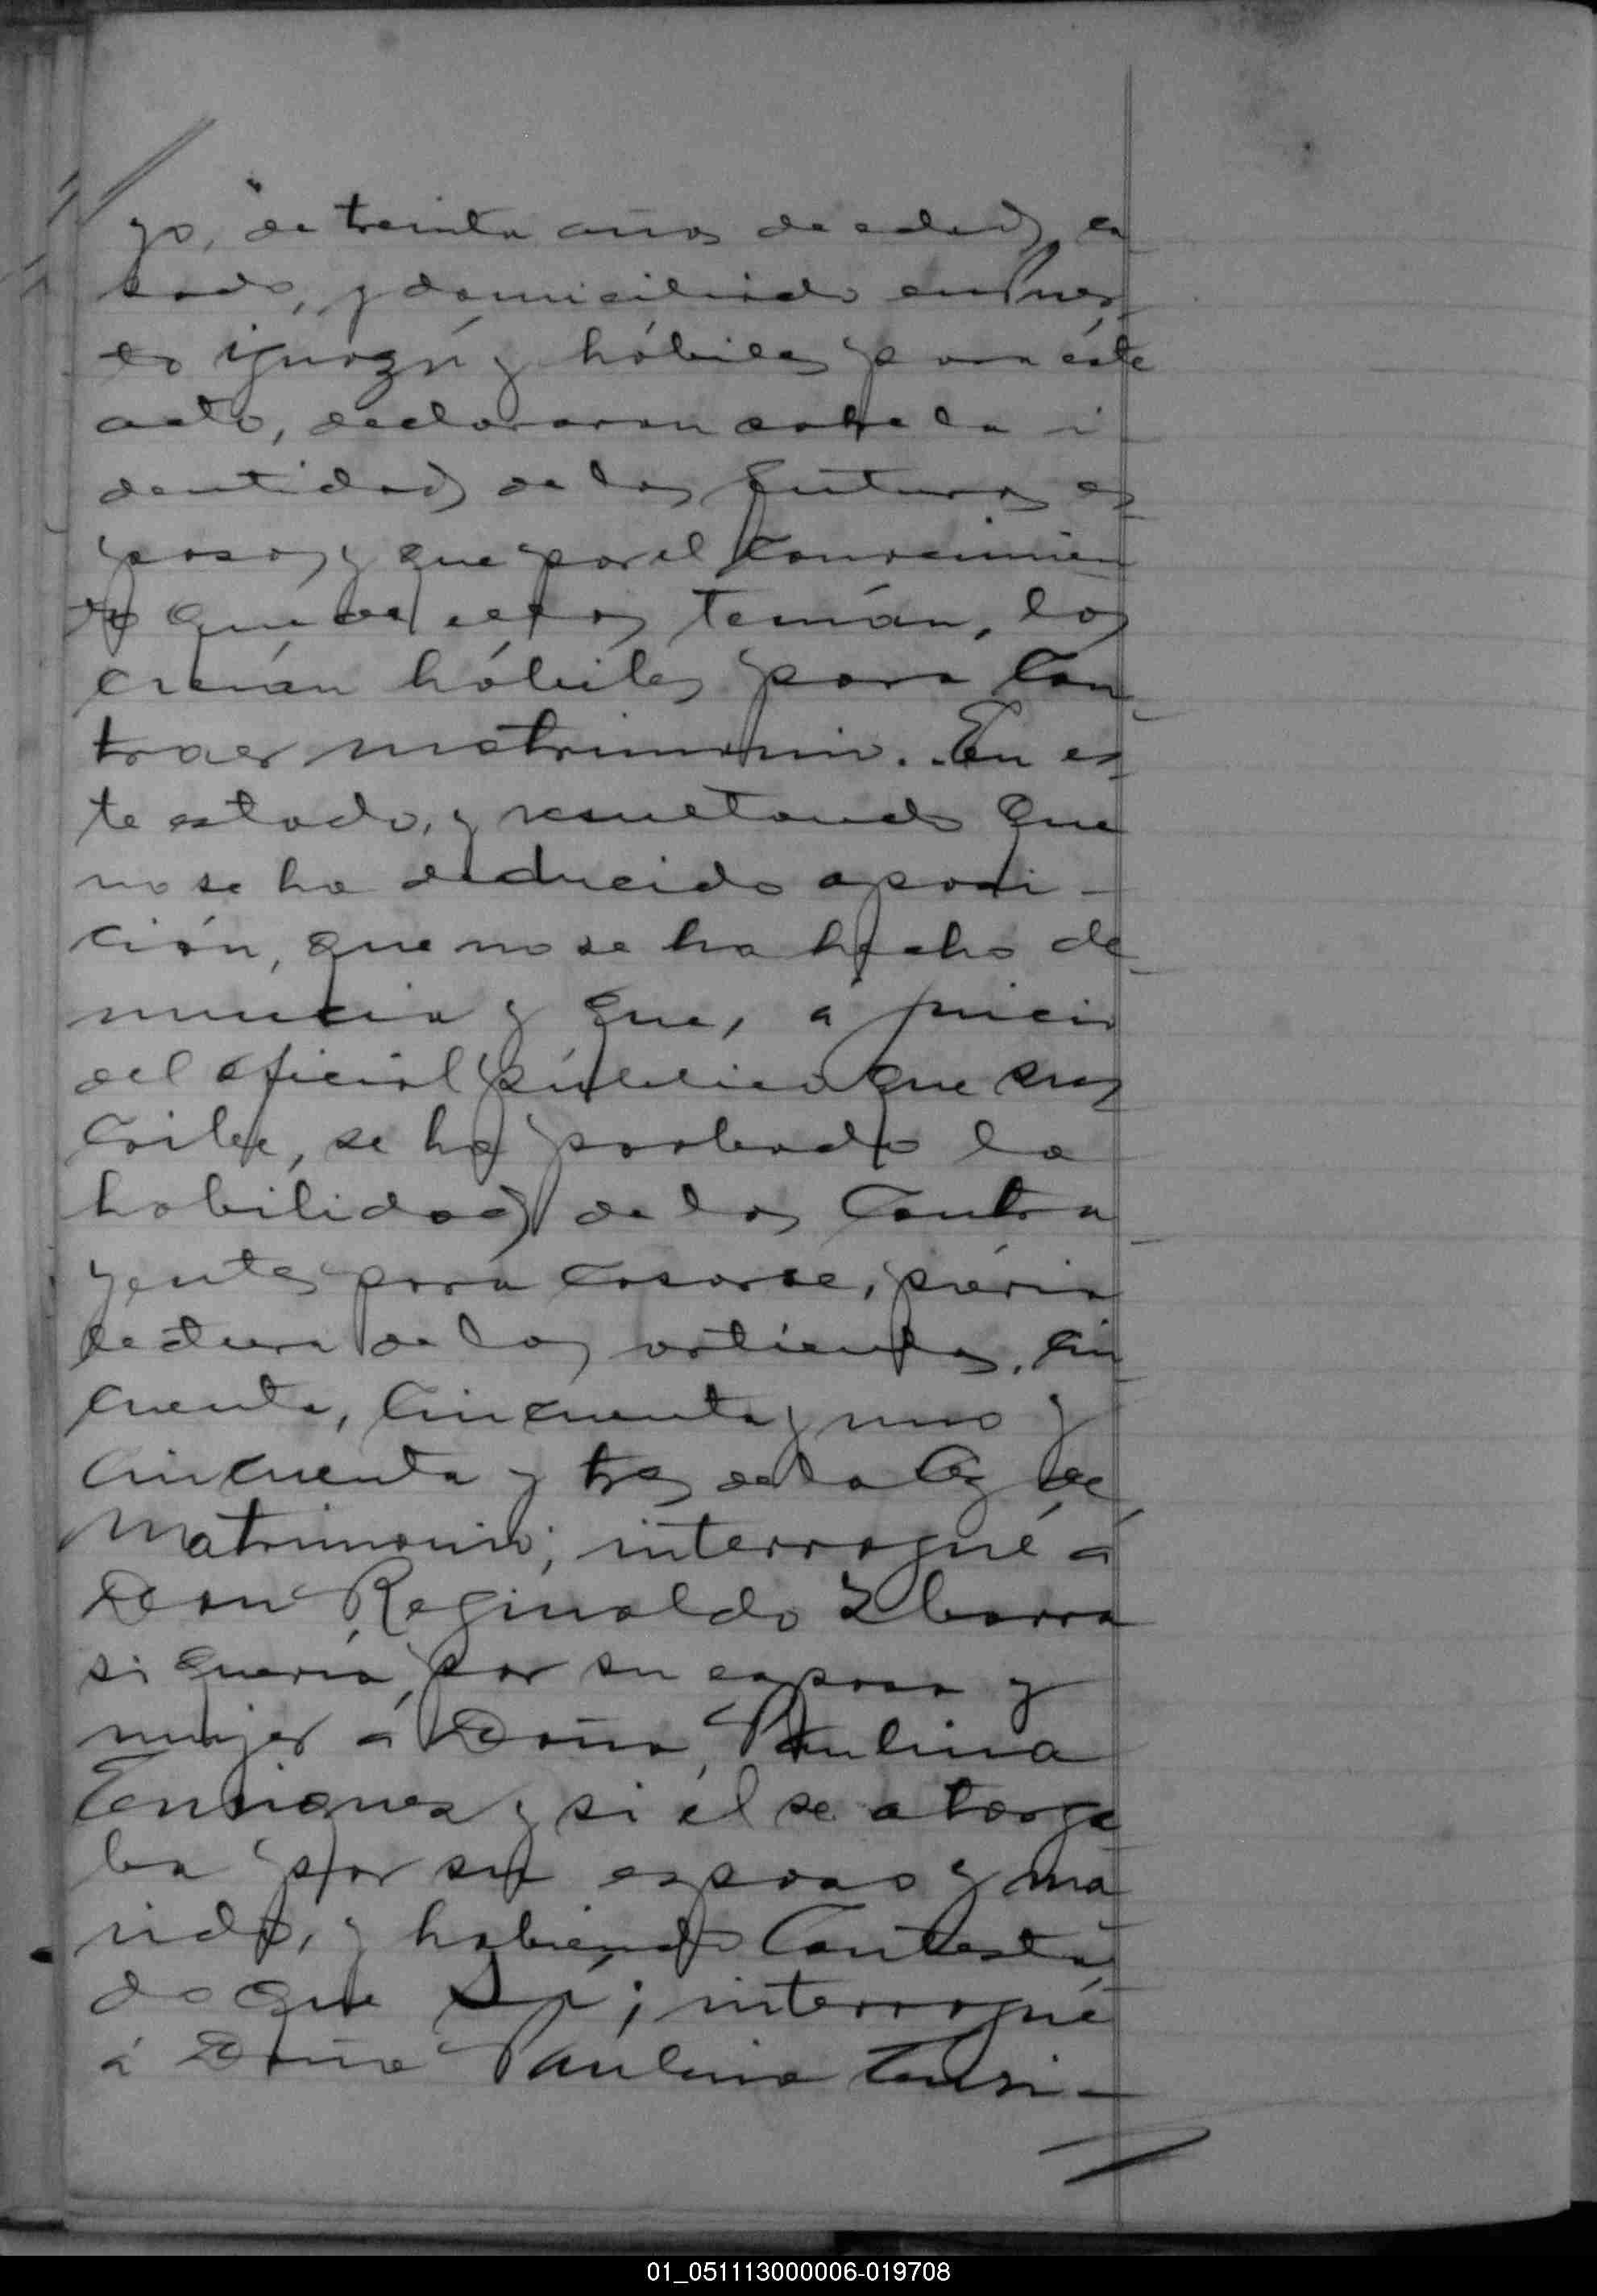 yo, de treinta años de edad, ca
sado, y domiciliado en Puer
to Iguazú y hábiles para éste
acto, declararon sobre la i
dentidad de los futuros es
posos, y que por el conocimien
to que de ellos tenían, los
creían hábiles para con
traer matrimonio. - En es
te estado, y resultando que
no se ha deducido oposi -
ción, que no se ha hecho de
nuncia y que, a juicio
del oficial público que sus
cribe, se ha probado la
habilidad de los contra
yentes para casarse, previa
lectura de los artículos, cin
cuenta, cincuenta y uno y
cincuenta y tres de la ley de
Matrimonio; interrogué á
Don Reginaldo Ybarra
si quería, por su esposa y
mujer a Doña Paulina
Enriquez y si él se otorga
ba por su esposo y ma
rido, y habiendo contesta
do que Si; interrogué
á Doña Paulina Enri -
01_051113000006-019708